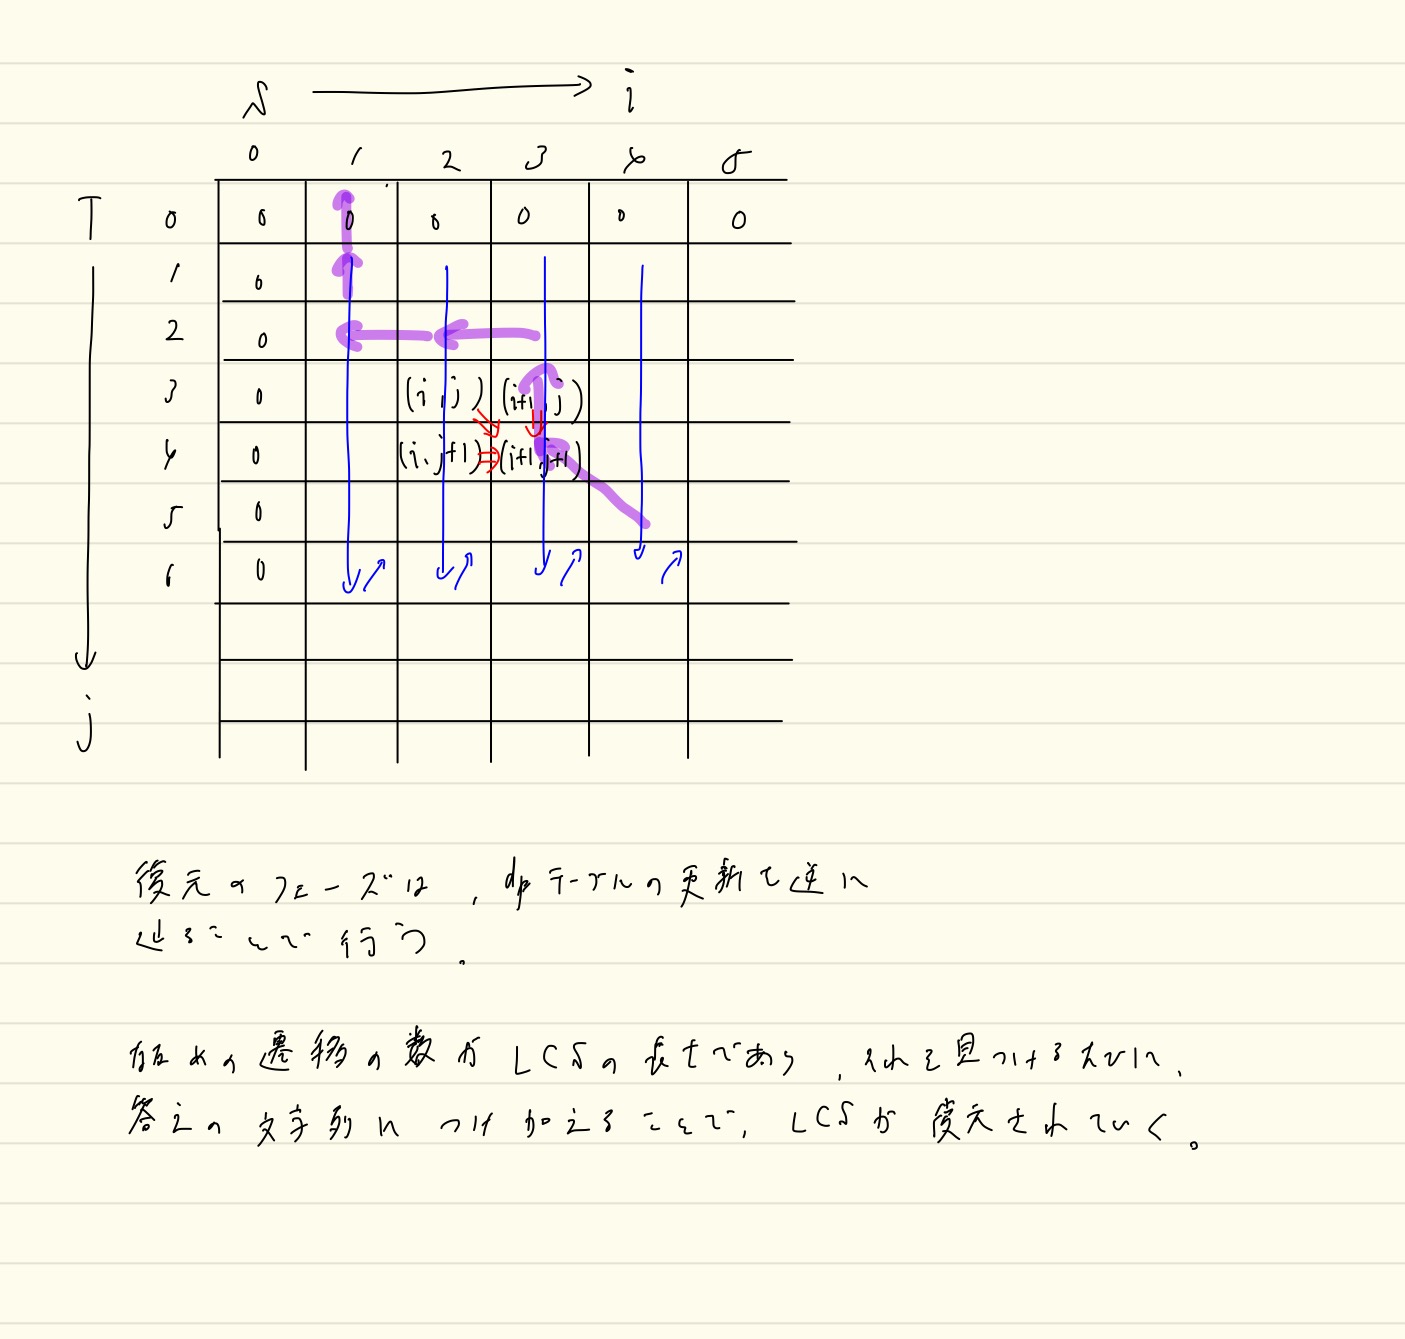 S i
0 1 2 3 4 5
T 0 0 0 0 0 0 0
1 0
2 0
3 0 (i,j) (i+1,j)
4 0 (i,j+1) (i+1,j+1)
5 0
6 0
j
復元のフェーズは，dpテーブルの更新を逆に
辿ることで行う。
斜めの遷移の数がLCSの長さであり，それを見つけるたびに，
答えの文字列に つけ加えることで，LCSが復元されていく。